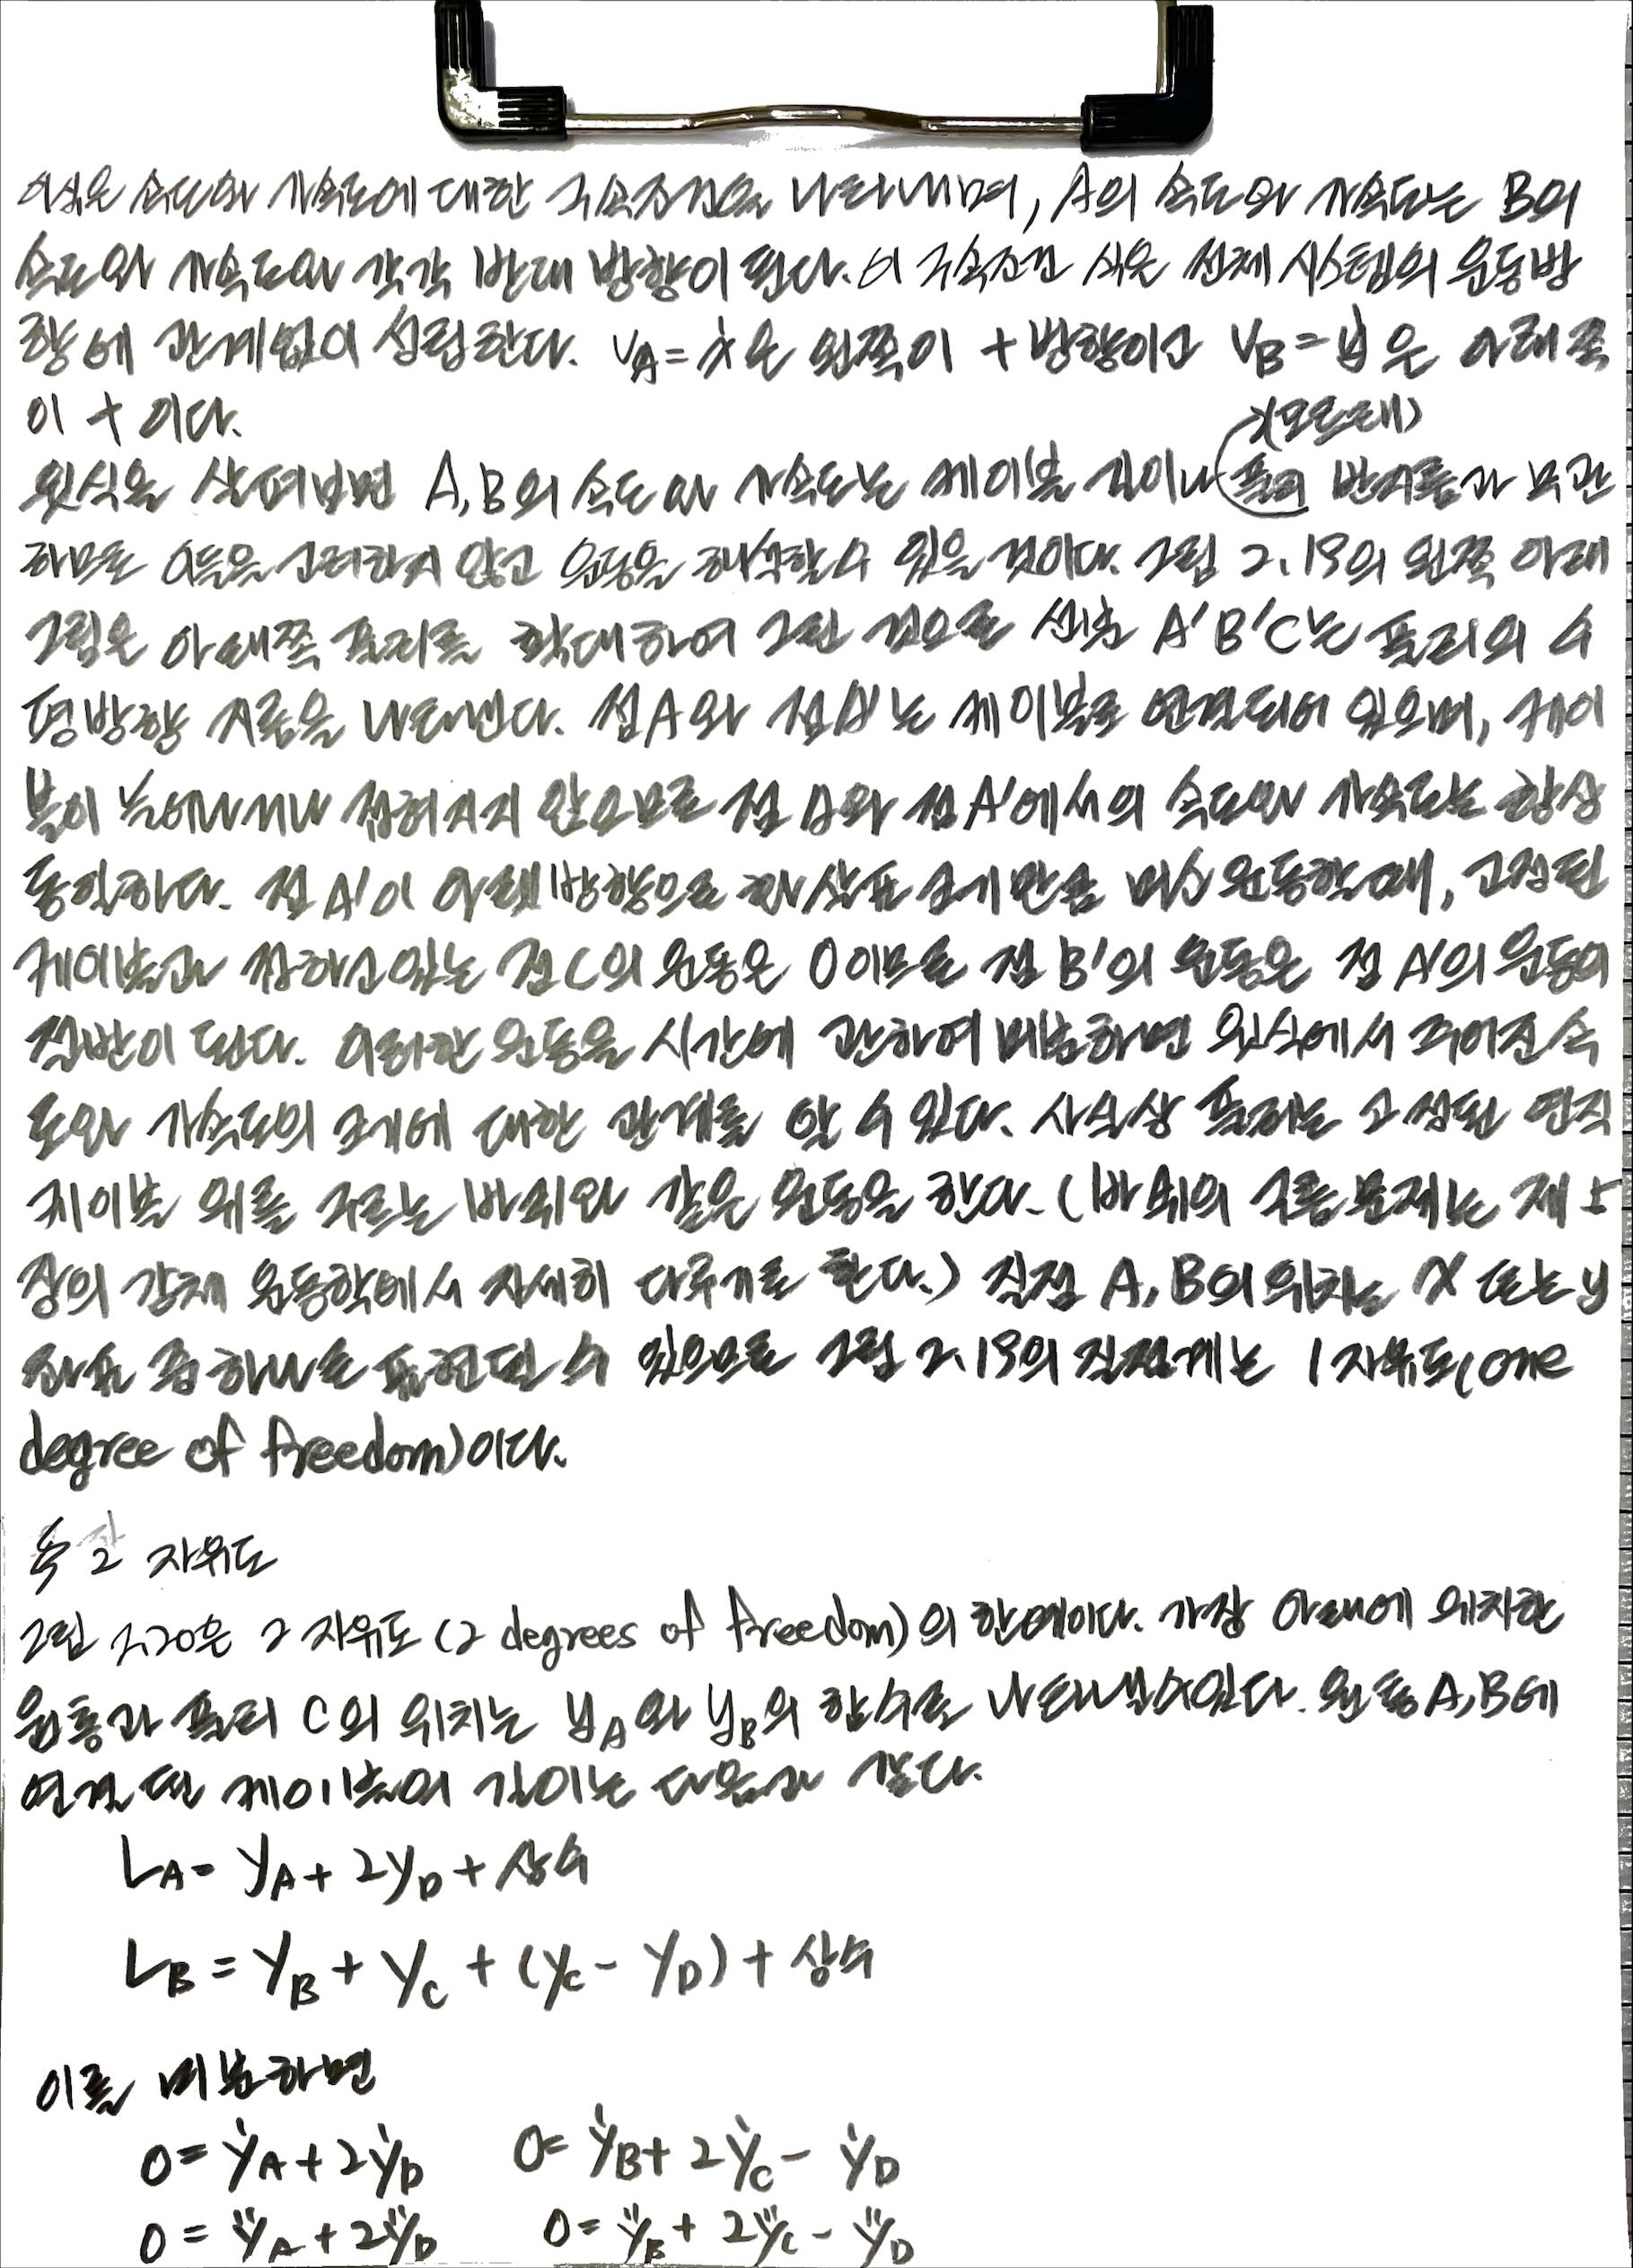 이식은 속도와 가속도에 대한 구속조건을 나타내며, A의 속도와 가속도는 B의
속도와 가속도와 각각 반대 방향이 된다. 이 구속조건 식은 전체 시스템의 운동방
향에 관계없이 성립한다. vA = ẋ은 왼쪽이 + 방향이고 vB = ẏ은 아래쪽
이 + 이다.
(도르래)
윗식을 살펴보면 A, B의 속도와 가속도는 케이블 길이나 풀리 반지름과 무관
하므로 이들을 고려하지 않고 운동을 해석할 수 있을 것이다. 그림 2.19의 왼쪽 아래
그림은 아래쪽 풀리를 확대하여 그린 것으로 선분 A'B'C는 풀리의 수
평방향 지름을 나타낸다. 점A와 점A'는 케이블로 연결되어 있으며, 케이
블이 늘어나거나 접혀지지 않으므로 점 A와 점 A'에서의 속도와 가속도는 항상
동일하다. 점 A'이 아래 방향으로 미소 운동할 때, 고정된
케이블과 접하고 있는 점 C의 운동은 0이므로 점 B'의 운동은 점 A'의 운동의
절반이 된다. 이러한 운동을 시간에 관하여 미분하면 윗식에서 주어진 속
도와 가속도의 크기에 대한 관계를 알 수 있다. 사실상 풀리는 고정된 연직
케이블 위를 구르는 바퀴와 같은 운동을 한다. (바퀴의 구름 문제는 제 5
장의 강체 운동학에서 자세히 다루기로 한다.) 질점 A, B의 위치는 x 또는 y
좌표 중 하나로 표현될 수 있으므로 그림 2.19의 질점계는 1 자유도(one
degree of freedom)이다.
2 자유도
그림 2.20은 2 자유도 (2 degrees of freedom)의 한 예이다. 가장 아래에 위치한
원통과 풀리 C의 위치는 yA와 yB의 함수로 나타낼 수 있다. 원통 A, B에
연결된 케이블의 길이는 다음과 같다.
LA = yA + 2yD + 상수
LB = yB + yC + (yC - yD) + 상수
이를 미분하면
0 = ẏA + 2ẏD 0 = ẏB + 2ẏC - ẏD
0 = ÿA + 2ÿD 0 = ÿB + 2ÿC - ÿD